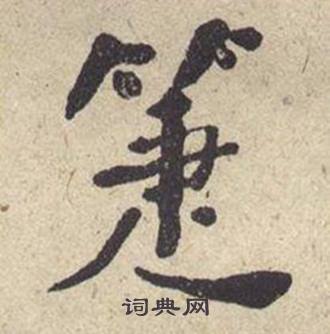 箑
词典网